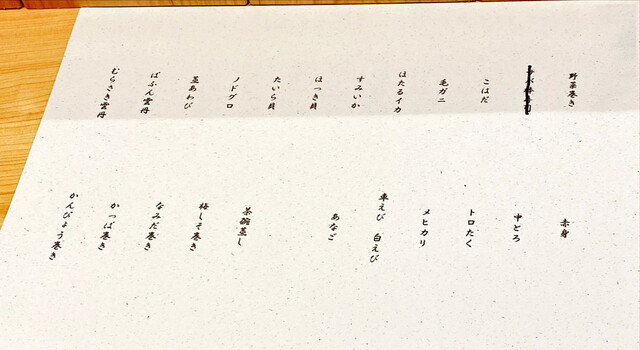 野菜巻き
こはだ
毛ガニ
ほたるイカ
すみいか
ほっき貝
たいら貝
ノドグロ
蒸あわび
ばふん雲丹
むらさき雲丹
赤身
中とろ
トロたく
メヒカリ
車えび 白えび
あなご
茶碗蒸し
梅しそ巻き
なみだ巻き
かっぱ巻き
かんぴょう巻き